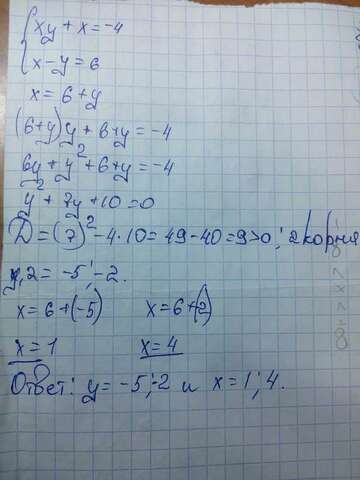 { xy + x = -4
x - y = 6
x = 6 + y
(6+y)y + 6 + y = -4
6y + y² + 6 + y = -4
y² + 7y + 10 = 0
D = (7)² - 4·10 = 49 - 40 = 9 > 0; 2 корня
y,2 = -5; -2.
x = 6 + (-5) x = 6 + (-2)
x = 1 x = 4
Ответ: y = -5; -2 и x = 1; 4.